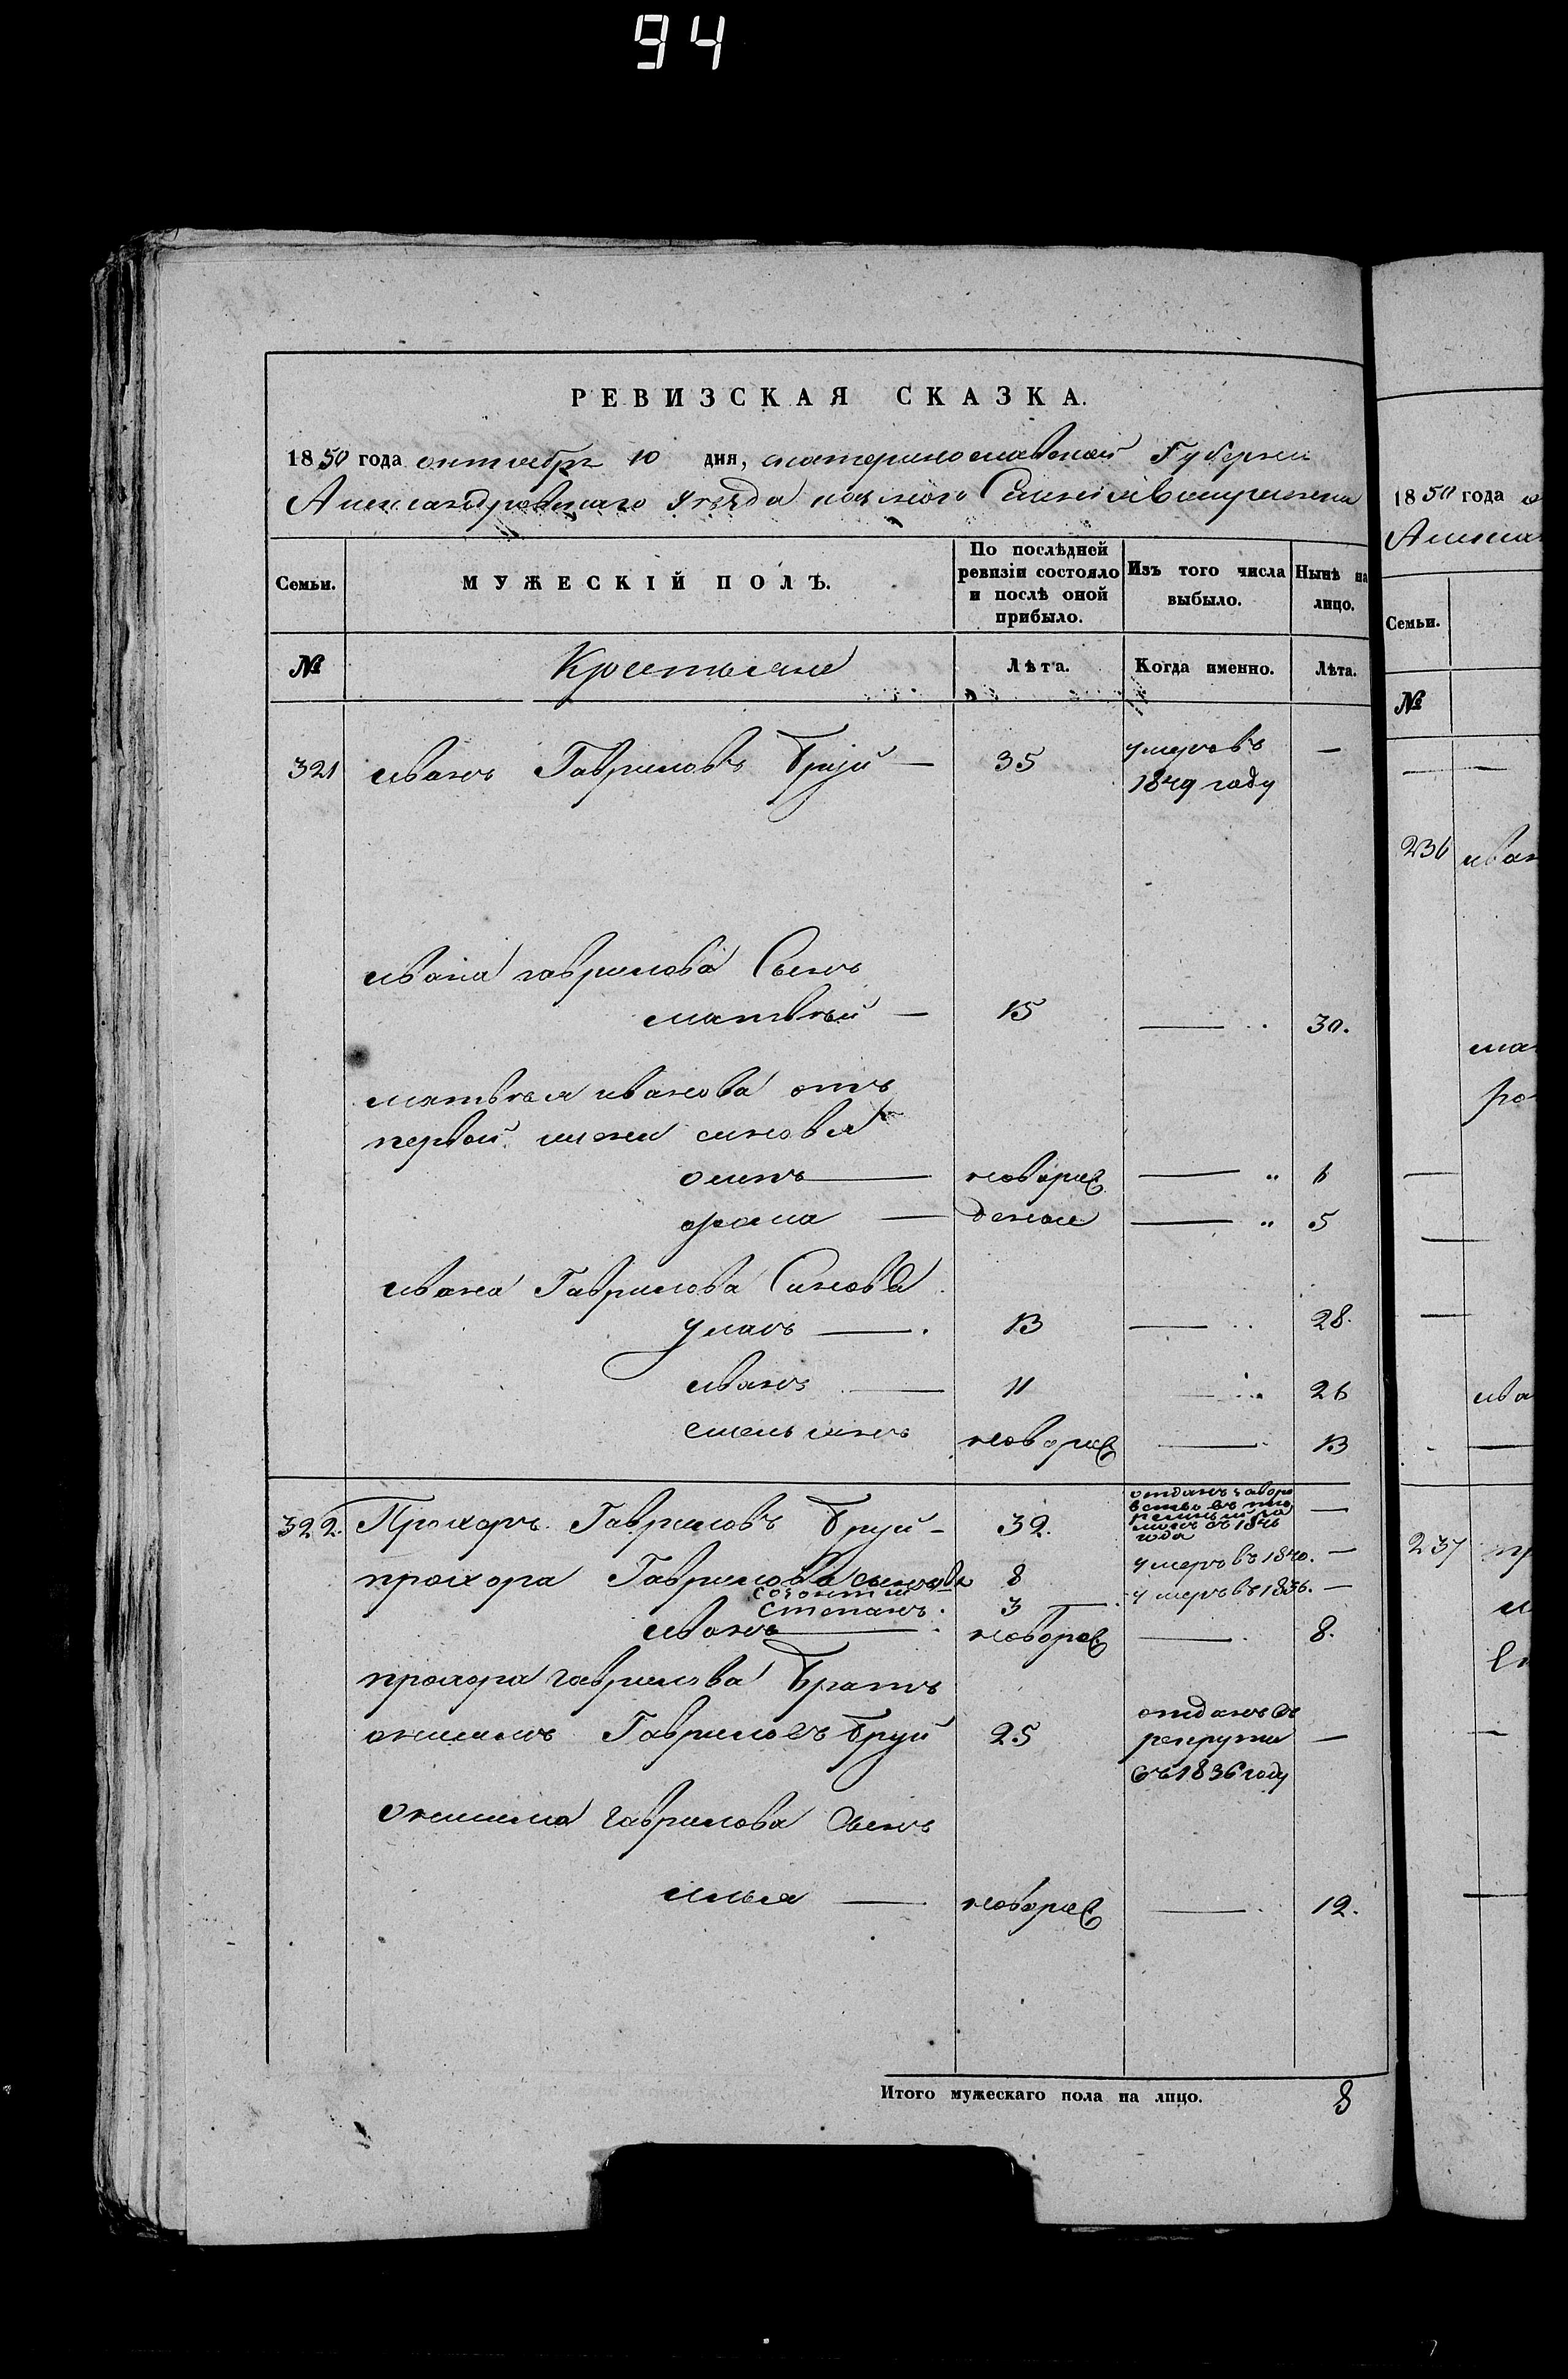 94
РЕВИЗСКАЯ СКАЗКА.
1850 года октября 10 дня, екатеринославской Губернии
Александровскаго Уезда казенного Селения
Семьи. МУЖЕСКІЙ ПОЛЪ. По послѣдней ревизіи состояло и послѣ оной прибыло. Изъ того числа выбыло. Нынѣ на лицо.
№ Крестьяне Лѣта. Когда именно. Лѣта.
321 иванъ Гавриловъ Бруй — 35 умеръ въ —
1849 году
ивана гаврилова Сынъ
матвѣй — 15 — 30.
матвѣя иванова отъ
первой жены синовья
осипъ — новорож — " 6
фома — денные — " 5
ивана Гаврилова Синовья
уласъ — 13 — 28.
иванъ — 11 — 26
емельянъ новорож — 13
322. Прохоръ Гавриловъ Бруй - 32. отданъ —
1846
года
прохора Гаврилова сыновья 8 умеръ въ 1840. —
степанъ. 3 — умеръ въ 1836. —
иванъ — новорож — 8.
прохора гаврилова Братъ
онисимъ Гавриловъ Бруй 25 отданъ въ
рекруты —
въ 1836 году
онисима гаврилова Сынъ
илья — новорож — 12.
Итого мужескаго пола на лицо. 8
1850 года
Семьи.
№
236 иван
мат
ива
237 пр